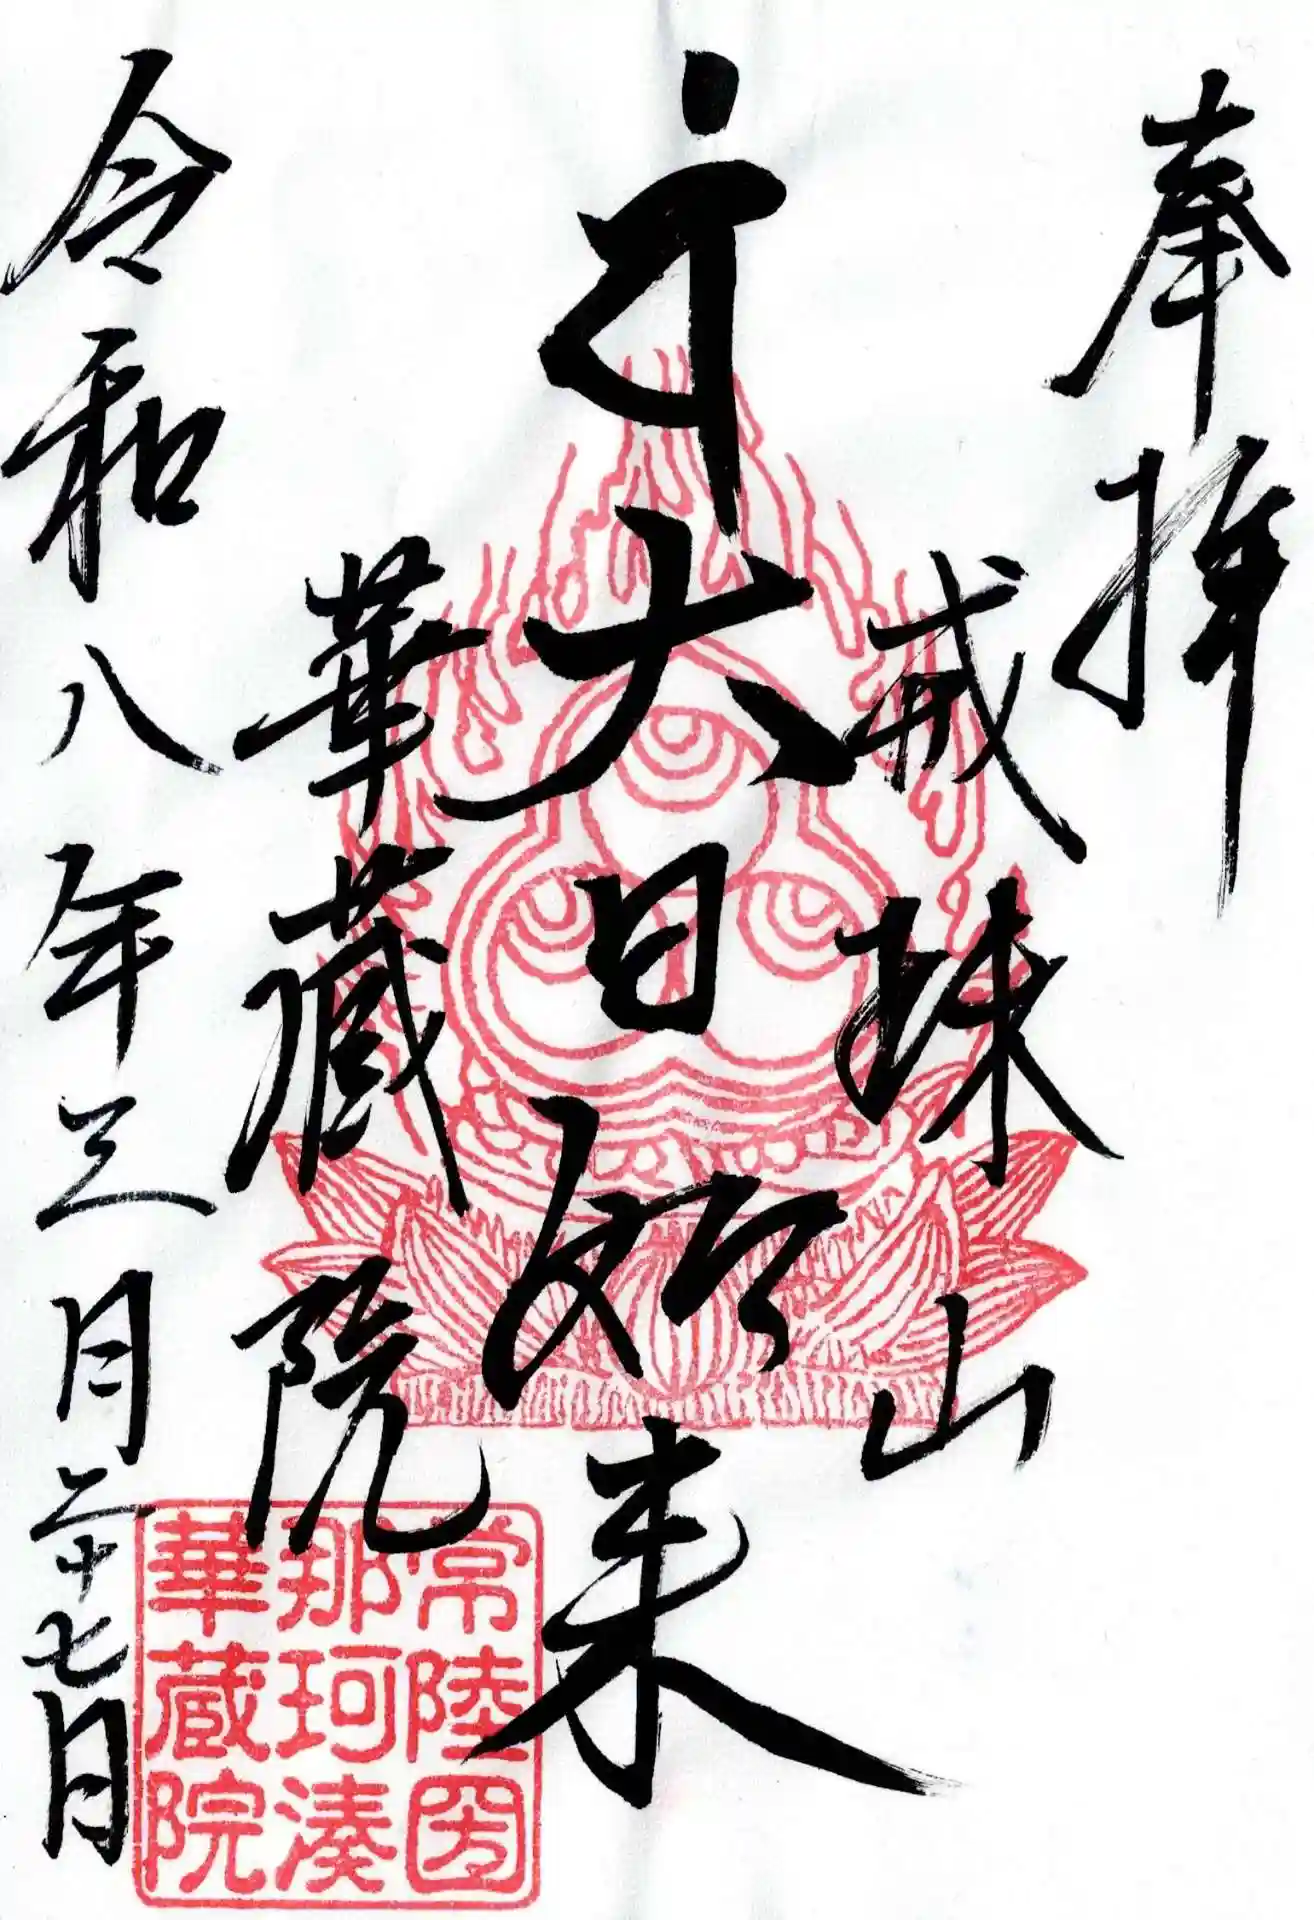 奉拝
戒珠山
大日如来
華蔵院
令和八年三月二十七日
常陸圀
那珂湊
華蔵院